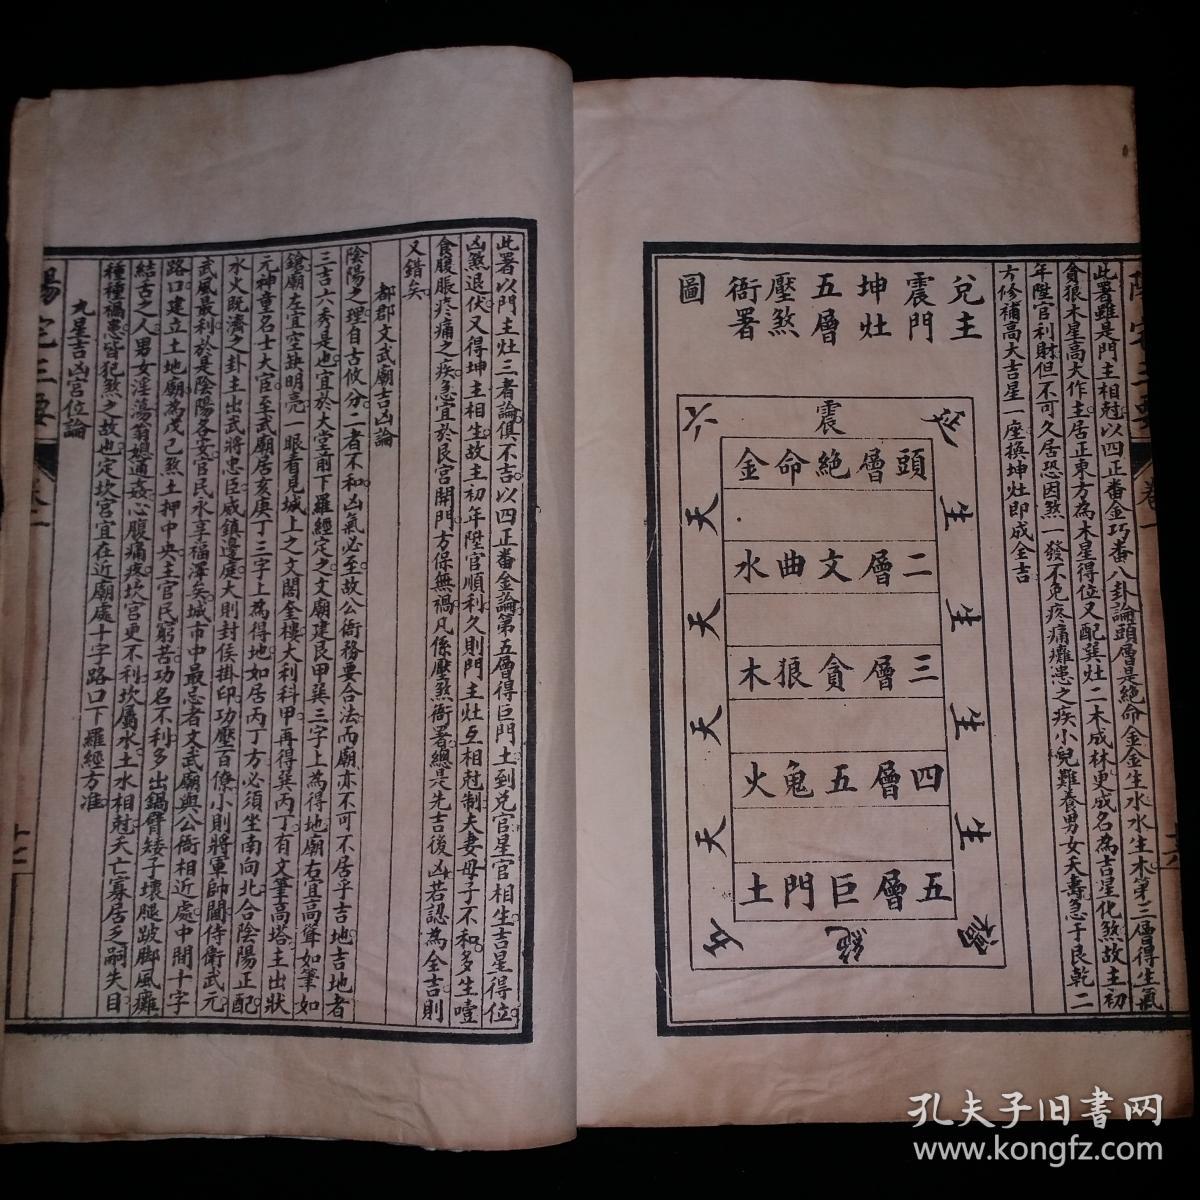 此署雖是門主相尅以四正番金巧番八卦論頭層是絶命金金生水水生木第三層得生氣
貪狼木星高大作主居正東方為木星得位又配巽灶二木成林更成名為吉星化煞故主初
年陞官利財但不可久居恐因煞一發不免疼痛癱患之疾小兒難養男女夭壽急于艮乾二
方修補高大吉星一座換坤灶即成全吉
兌主
震門
坤灶
五層
壓煞
衙署
圖
六 震 延
頭層絶命金
二層文曲水
三層貪狼木
四層五鬼火
五層巨門土
生生生生
天天天天
絶
禍
此署以門主灶三者論俱不吉以四正番金論第五層得巨門土到兌宮星宮相生吉星得位
凶煞退伏又得坤主相生故主初年陞官順利久則門主灶互相尅制夫妻母子不和多生噎
食腹脹疼痛之疾急宜於艮宮開門方保無禍凡係壓煞衙署總是先吉後凶若認為全吉則
又錯矣
都郡文武廟吉凶論
陰陽之理自古攸分二者不和凶氣必至故公衙務要合法而廟亦不可不居乎吉地吉地者
三吉六秀是也宜於大堂前下羅經定之文廟建艮甲巽三字上為得地廟右宜高聳如筆如
鎗廟左宜空缺明亮一眼看見城上之文閣奎樓大利科甲再得巽丙丁有文筆高塔主出狀
元神童名士大官至武廟居亥庚丁三字上為得地如居丙丁方必須坐南向北合陰陽正配
水火既濟之卦主出武將忠臣威鎮邊庭大則封侯掛印功壓百僚小則將軍帥閫侍衛武元
武風最利於是陰陽各安官民永享福澤矣城市中最忌者文武廟與公衙相近處中間十字
路口建立土地廟為戊己煞土押中央主官民窮苦功名不利多出鍋臂矮子壞腿跛脚風癱
結舌之人男女淫蕩翁媳通姦心腹痛疼坎宮更不利坎屬水土水相尅夭亡寡居乏嗣失目
種種禍患皆犯煞之故也定坎宮宜在近廟處十字路口下羅經方准
九星吉凶宮位論
陽宅三要
卷一
孔夫子旧書网
www.kongfz.com